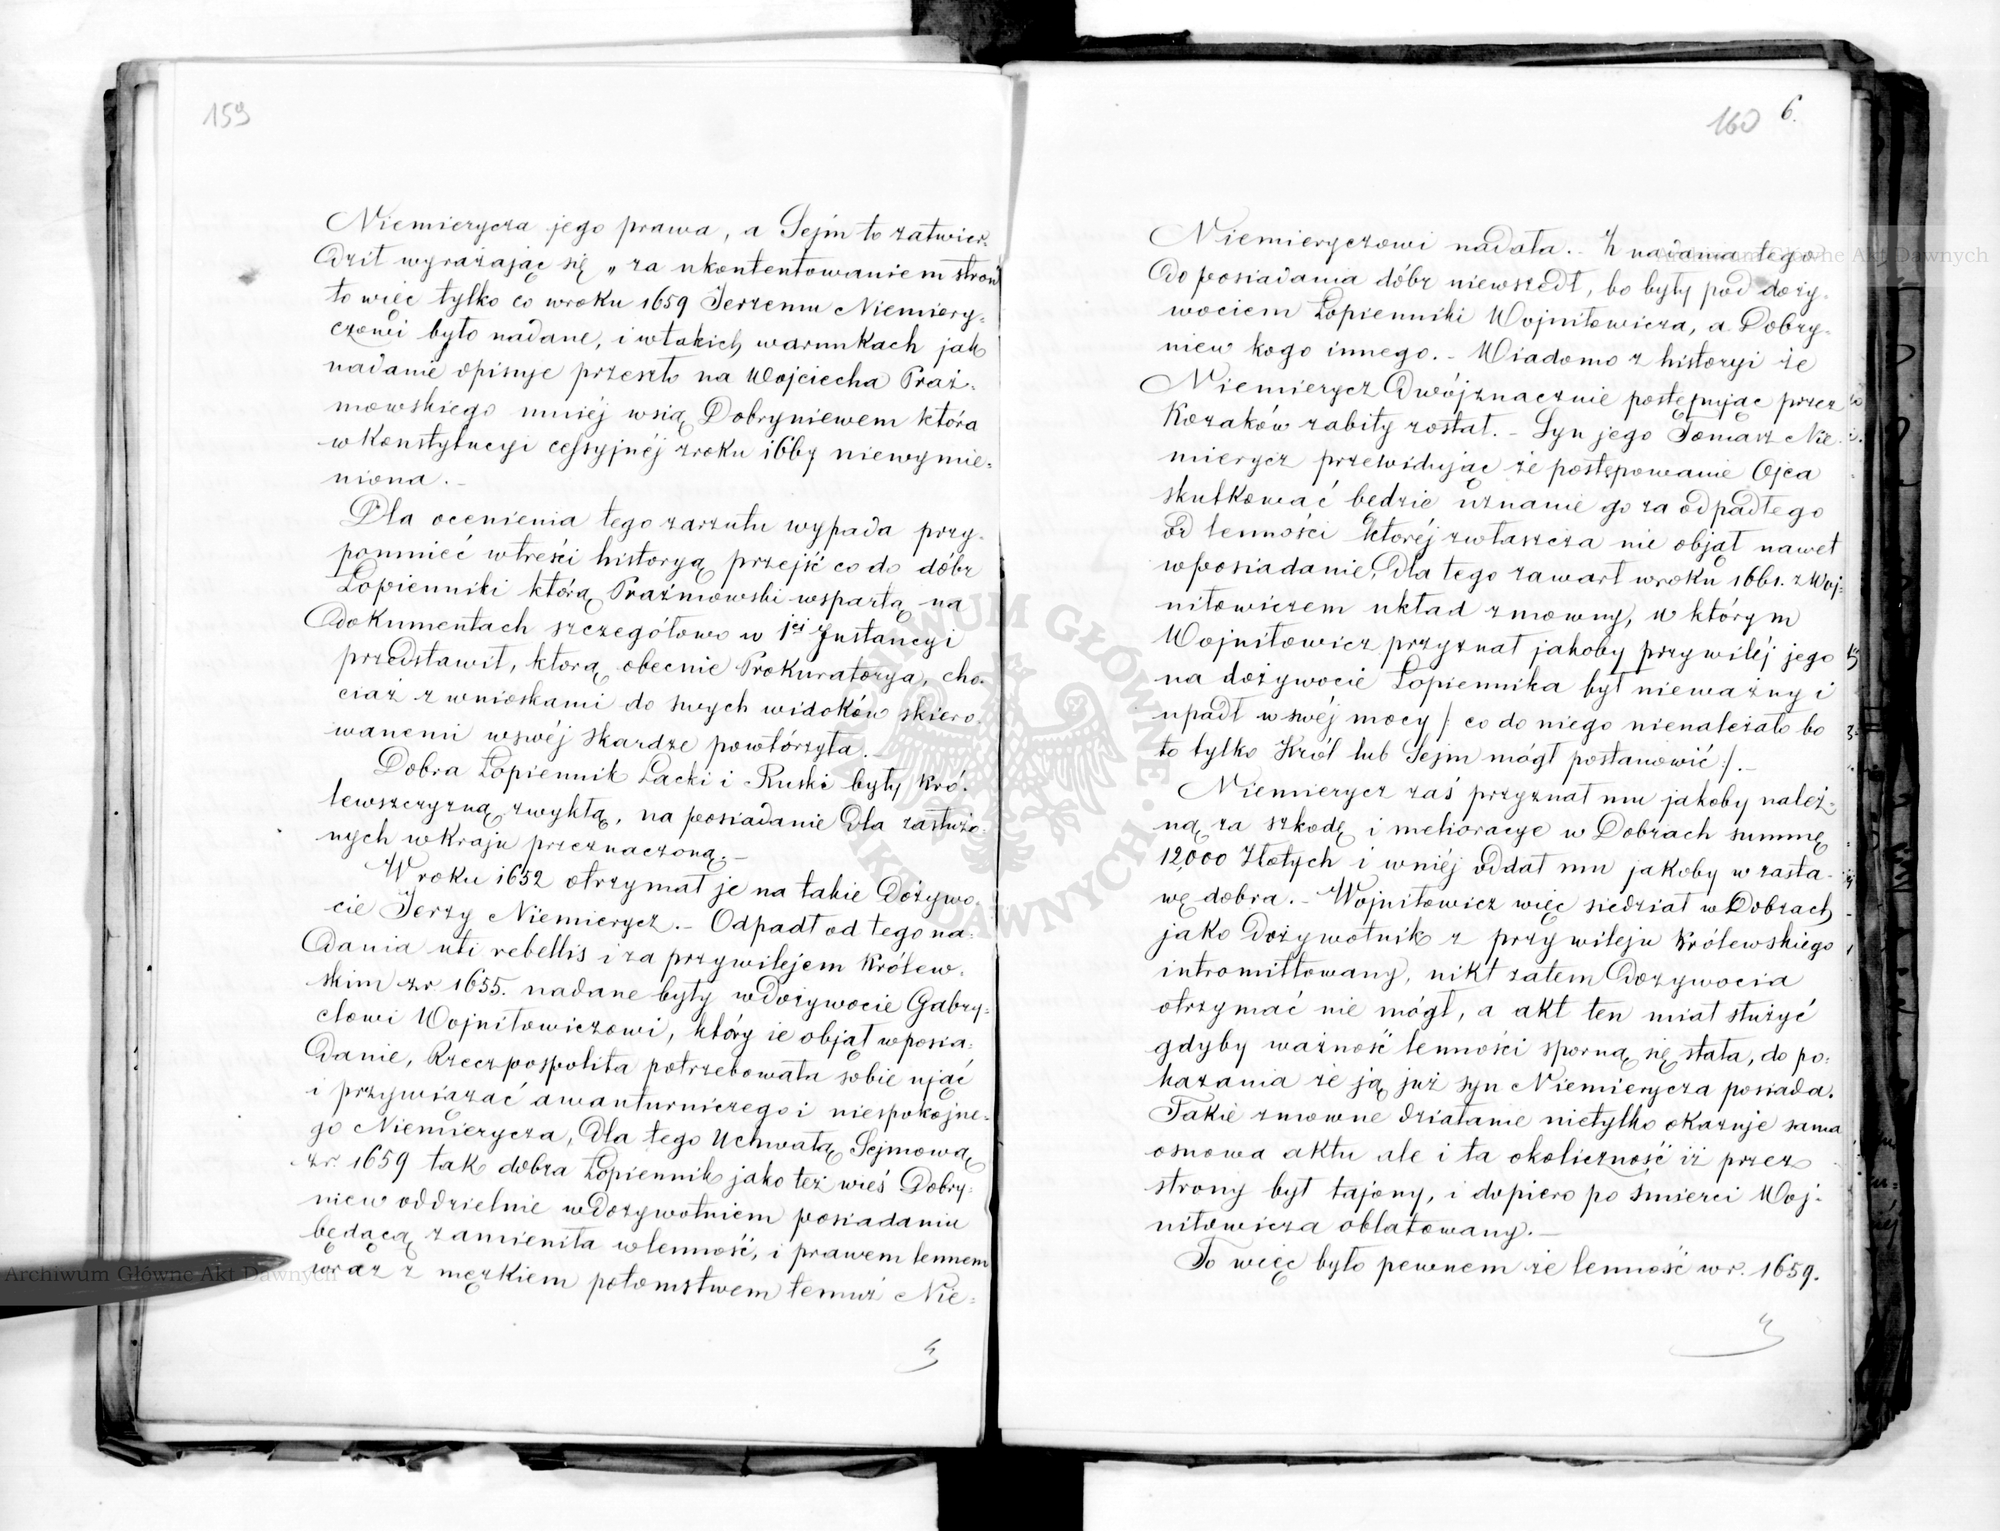 159
Niemierycza jego prawa, a Sejm to zatwier-
dził wyrażając się „za ukontentowaniem stron"
to więc tylko co wroku 1659 Jerzemu Niemiery-
czowi było nadane, i wtakich warunkach jak
nadanie opisuje przeszło na Wojciecha Praż-
mowskiego mniéj wsią Dobryniewem która
w Konstytucyi cessyjnéj zroku 1667 niewymie-
niona. -
Dla ocenienia tego zarzutu wypada przy-
pomnieć wtreści historyą przejść co do dóbr
Łopienniki którą Prażmowski wspartą na
dokumentach szczegółowo w 1ej Instancyi
przedstawił, którą obecnie Prokuratorya, cho-
ciaż z wnioskami do swych widoków skiero-
wanemi wswéj skardze powtórzyła. -
Dobra Łopiennik Lacki i Ruski były kró-
lewszczyzną zwykłą, na posiadanie dla zasłużo-
nych wkraju przeznaczoną. -
W roku 1652 otrzymał je na takie dożywo-
cie Jerzy Niemierycz. - Odpadł od tego na-
dania uti rebellis i za przywilejem Królew-
skim zr 1655. nadane były wdożywocie Gabry-
elowi Wojniłowiczowi, który ie objął wposia-
danie, Rzeczpospolita potrzebowała sobie ująć
i przywiązać awanturniczego i niespokojne-
go Niemierycza, dla tego Uchwałą Sejmową
zr. 1659 tak dobra Łopiennik jako też wieś Dobry-
niew oddzielnie wdożywotniem posiadaniu
będącą zamieniła wlenność, i prawem lennem
wraz z męzkiem potomstwem temuż Nie-
160 6.
Niemieryczowi nadała. - Z nadania tego
do posiadania dóbr niewszedł, bo były pod doży-
wociem Łopienniki Wojniłowicza, a Dobry-
niew kogo innego. - Wiadomo z historyi że
Niemierycz dwójznacznie postępując przez
Kozaków zabity został. - Syn jego Tomasz Nie-
mierycz przewidując że postępowanie Ojca
skutkować będzie uznanie go za odpadłego
od lenności któréj zwłaszcza nie objął nawet
wposiadanie, dla tego zawarł wroku 1661. z Woj-
niłowiczem układ zmowny, w którym
Wojniłowicz przyznał jakoby przywiléj jego
na dożywocie Łopiennika był nieważny i
upadł w swéj mocy /: co do niego nienależało bo
to tylko Król lub Sejm mógł postanowić :/. -
Niemierycz zaś przyznał mu jakoby należ-
ną za szkodę i melioracye w Dobrach summę
12,000 Złotych i wniéj oddał mu jakoby w zasta-
wę dobra. - Wojniłowicz więc siedział w Dobrach
jako dożywotnik z przywileju Królewskiego
intromittowany, nikt zatem dożywocia
otrzymać nie mógł, a akt ten miał służyć
gdyby ważność lenności sporną się stała, do po-
kazania że ją już syn Niemierycza posiada.
Takie zmowne działanie nietylko okazuje sama
osnowa aktu ale i ta okoliczność iż przez
strony był tajony, i dopiero po śmierci Woj-
niłowicza oblatowany. -
To więc było pewnem że lenność w r. 1659.
Archiwum Główne Akt Dawnych
Archiwum Główne Akt Dawnych
ARCHIWUM GŁÓWNE AKT DAWNYCH